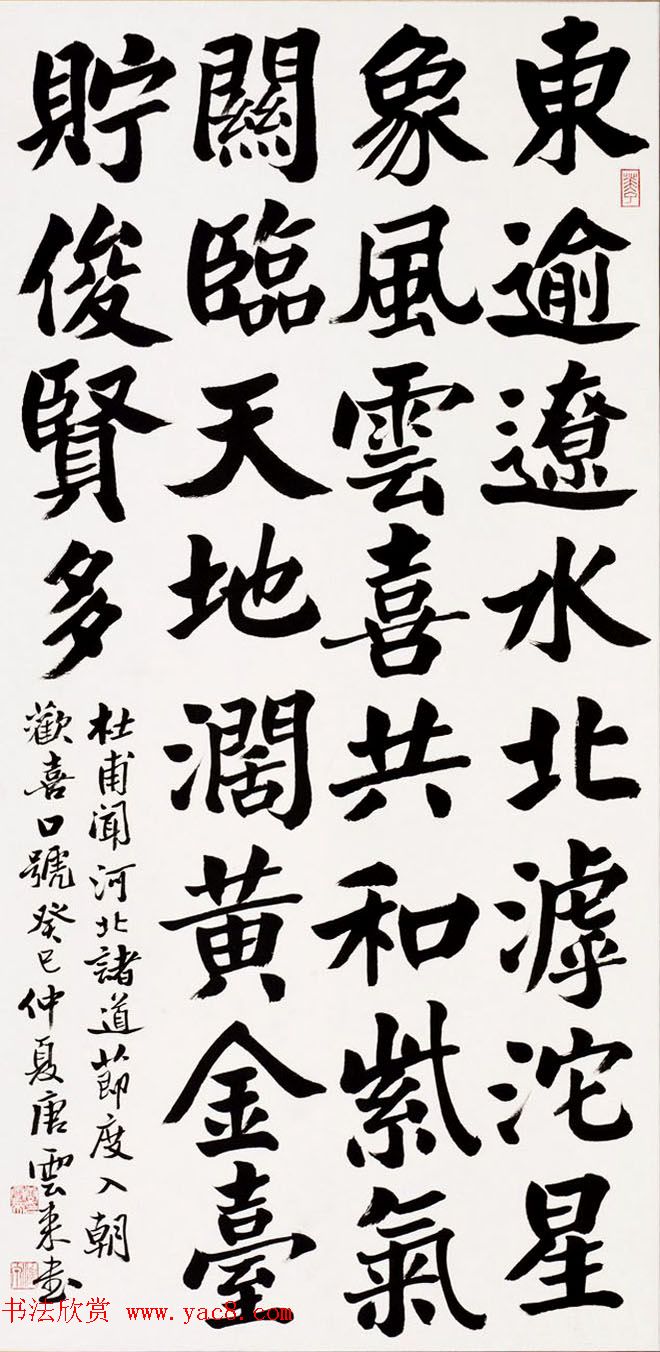 東逾遼水北滹沱星
象風雲喜共和紫氣
關臨天地濶黃金臺
貯俊賢多
杜甫聞河北諸道節度入朝
歡喜口號癸巳仲夏唐雲来书
书法欣赏 www.yac8.com